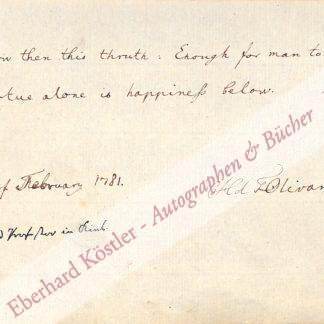 ow then this thruth: Enough for man to
tue alone is happineſs below.
of February 1781.
Old Tÿlivar
Profeſsor in Rinteln
Eberhard Köstler - Autographen & Bücher